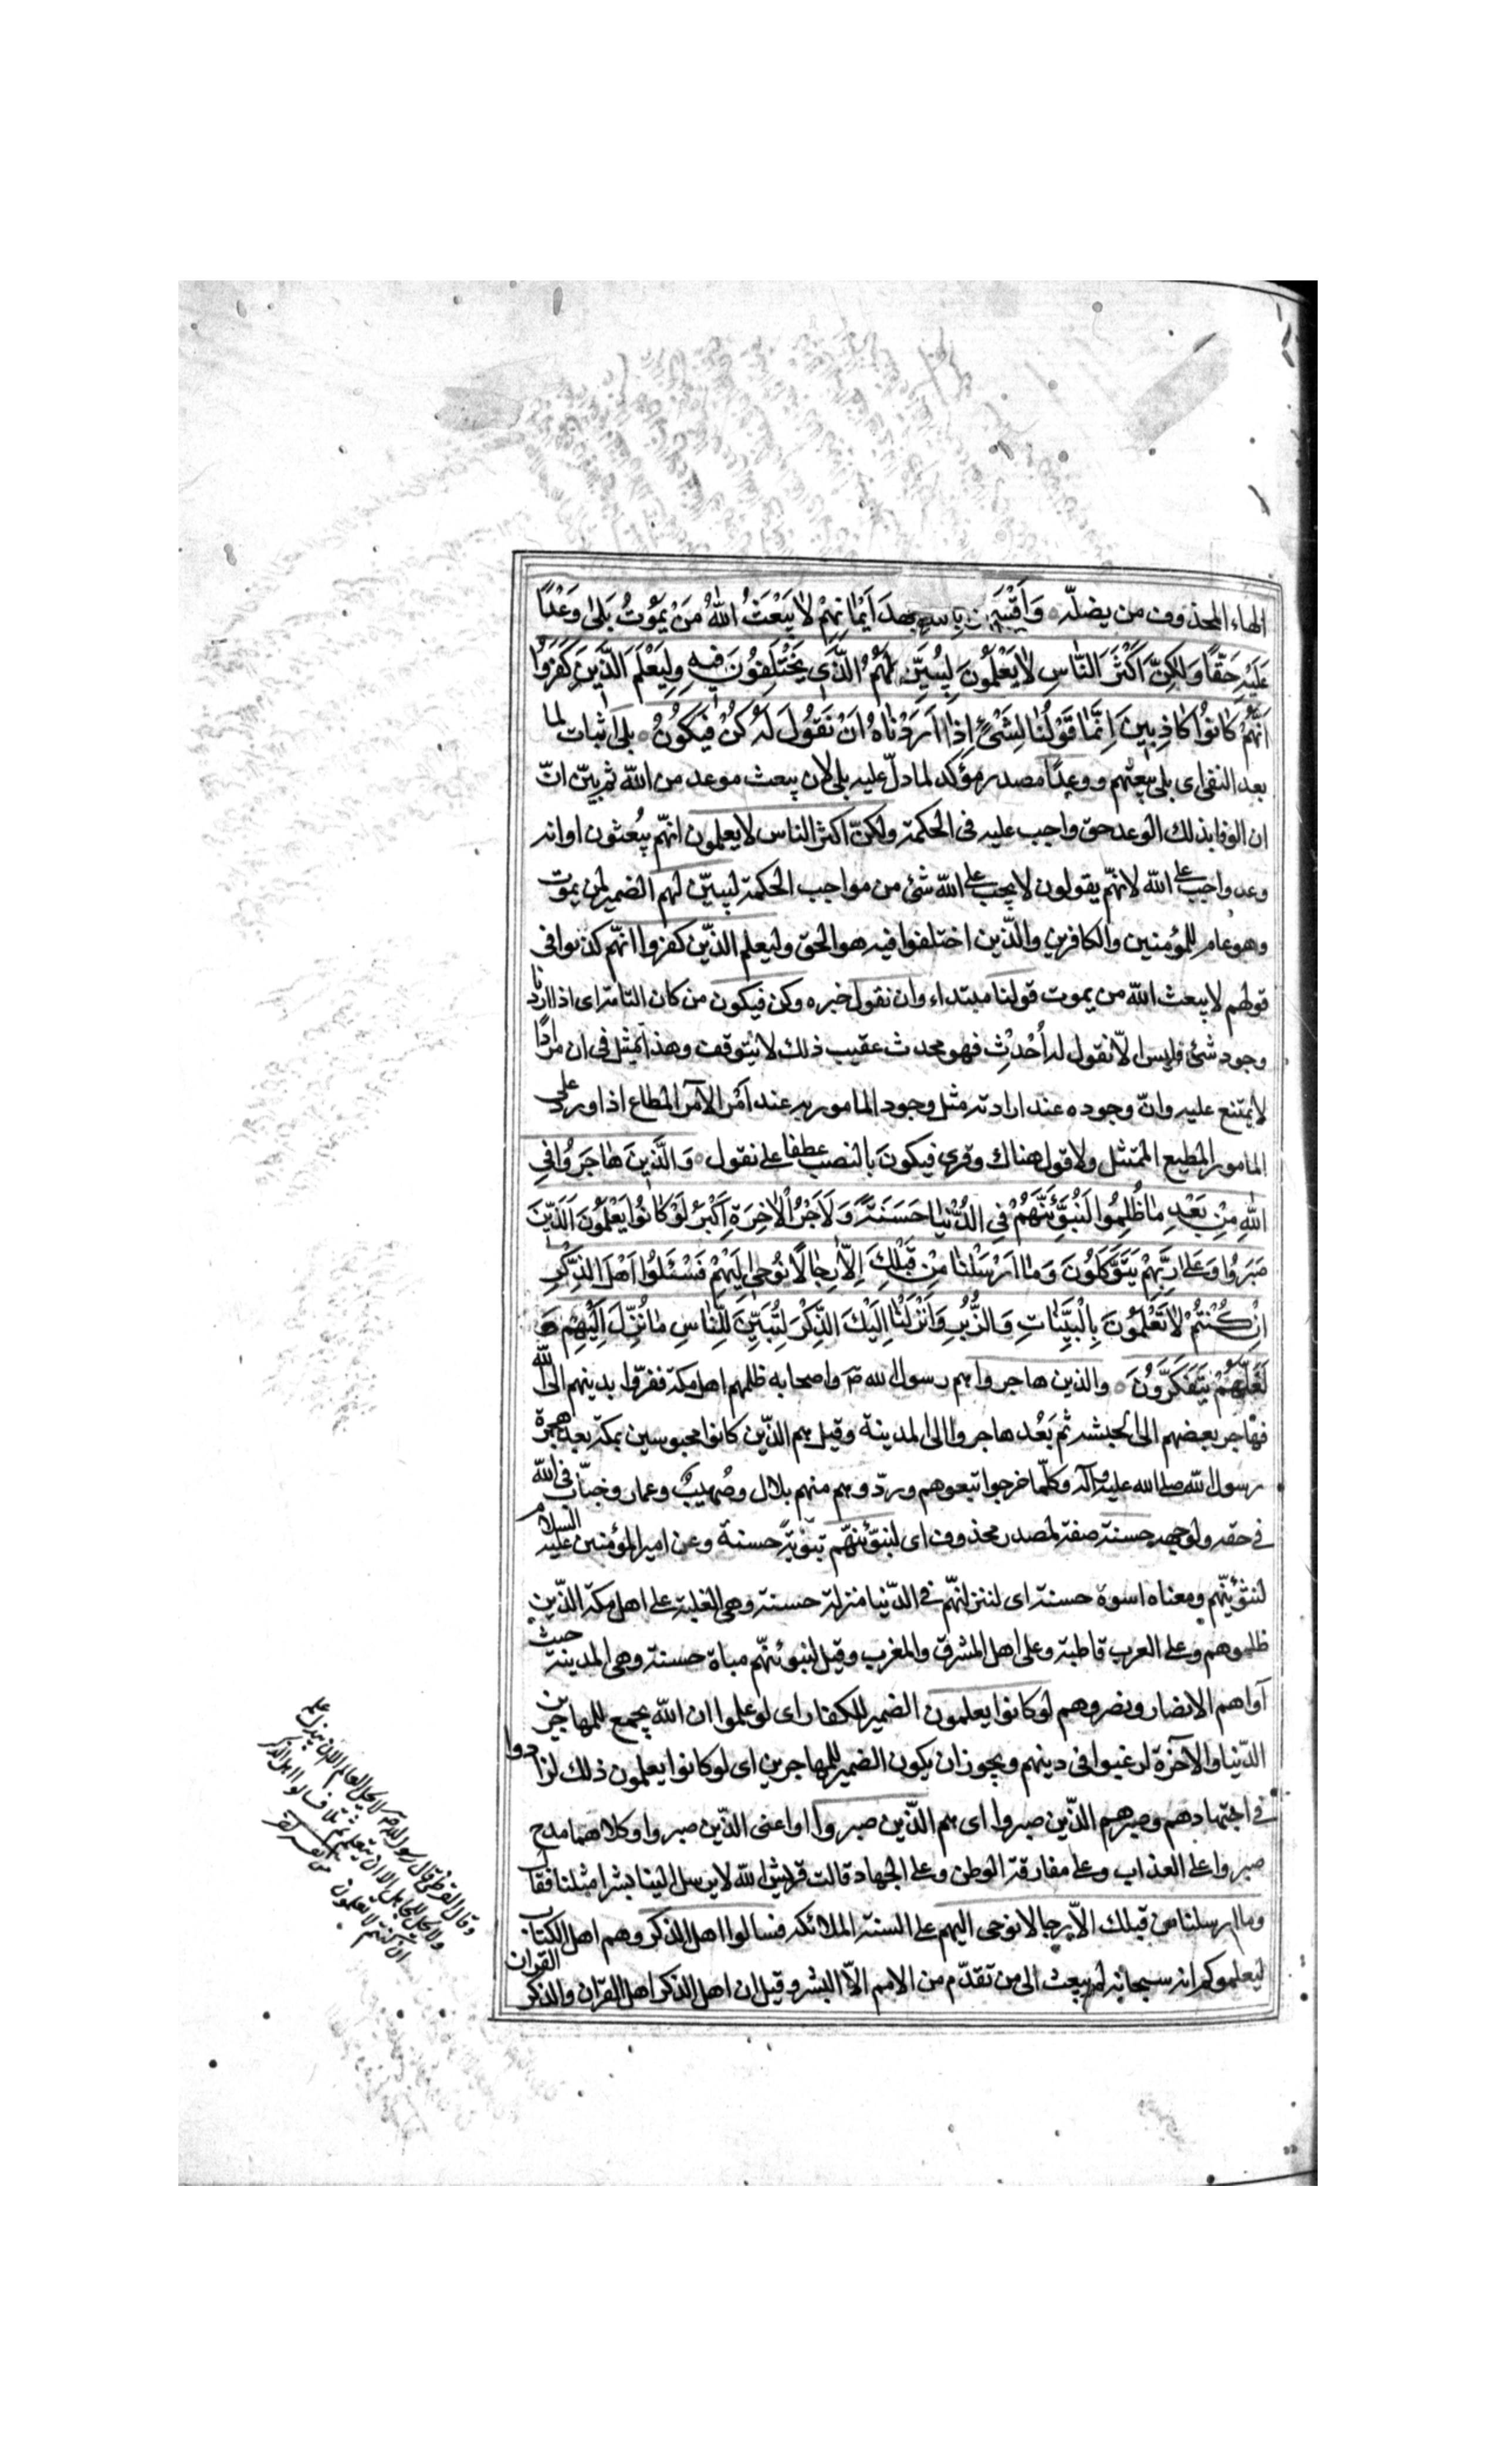 الهاء المحذوف من يضلّه وَاَقْسَمُوا بِاللهِ جهدَ اَيْمٰانِهِمْ لاٰ يَبْعَثُ اللهُ مَنْ يَمُوْتُ بَلىٰ وَعْدًا
عَلَيْهِ حَقًّا وَلٰكِنَّ اَكْثَرَ النّاسِ لاٰ يَعْلَمُونَ لِيُبَيِّنَ لَهُمُ الَّذِي يَخْتَلِفُونَ فيهِ وَلِيَعْلَمَ الَّذينَ كَفَرُوا
اَنَّهُمْ كٰانُوا كٰاذِبينَ اِنَّمٰا قَوْلُنٰا لِشَيْءٍ اِذٰا اَرَدْنٰاهُ اَنْ نَقُولَ لَهُ كُنْ فَيَكُونُ بلى اثبات لما
بعد النفى اى بلى يبعثهم ووعدًا مصدر مؤكد لما دلّ عليه بلى لان يبعث موعد من الله ثم بيّن انّ
ان الوفا بذلك الوعد حق واجب عليه فى الحكمة ولكنّ اكثر الناس لا يعلمون انهّم يُبعثون او انه
وعد واجب على الله لانهّم يقولون لا يجب على الله شئ من مواجب الحكمة ليبيّن لهم الضمير لمن يموت
وهو عام للمؤمنين والكافرين والذّين اختلفوا فيه هو الحق وليعلم الذّين كفروا انهّم كذبوا فى
قولهم لا يبعث الله من يموت قولنا مبتداء وان نقول خبره وكن فيكون من كان التامة اى اذا اردنا
وجود شئ فليس الاّ نقول له أُحْدُثْ فهو محدث عقيب ذلك لا يتوقف وهذا تمثيل فى ان مرادًا
لا يمتنع عليه وانّ وجوده عند ارادته مثل وجود المامور به عند اَمْر الآمر المطاع اذا ورد على
المامور المطيع الممتثل ولا قول هناك وقرى فيكونَ بالنصب عطفا على نقول وَالَّذينَ هٰاجَرُوا فِي
اللهِ مِنْ بَعْدِ مٰا ظُلِمُوا لَنُبَوِّئَنَّهُمْ فِي الدُّنْيٰا حَسَنَةً وَلَاَجْرُ الْاٰخِرَةِ اَكْبَرُ لَوْ كٰانُوا يَعْلَمُونَ اَلَّذينَ
صَبَرُوا وَعَلىٰ رَبِّهِمْ يَتَوَكَّلُونَ وَمٰا اَرْسَلْنٰا مِنْ قَبْلِكَ اِلّاٰ رِجٰالًا نُوحي اِلَيْهِمْ فَسْئَلُوا اَهْلَ الذِّكْرِ
اِنْ كُنْتُمْ لاٰ تَعْلَمُونَ بِالْبَيِّنٰاتِ وَالزُّبُرِ وَاَنْزَلْنٰا اِلَيْكَ الذِّكْرَ لِتُبَيِّنَ لِلنّٰاسِ مٰا نُزِّلَ اِلَيْهِمْ وَ
لَعَلَّهُمْ يَتَفَكَّرُونَ والذين هاجروا هم رسول الله ص واصحابه ظلمهم اهل مكة ففرّوا بدينهم الى الله
فهاجر بعضهم الى الحبشه ثم بَعُد هاجروا الى المدينة وقيل هم الذّين كانوا محبوسين بمكة بعد هجرة
رسول الله صلى الله عليه وآله وكلّما خرجوا تبعوهم وردّوهم منهم بلال وصُهيبٌ وعمار وخبّاب فى الله
فى حقه ولوجهه حسنة صفة لمصدر محذوف اى لنبوّئنهّم تبوّئةً حسنة وعن امير المؤمنين عليه السلام
لنثوّينهّم ومعناه اسوة حسنة اى لننزلنهّم فى الدّنيا منزلة حسنة وهى الغلبة على اهل مكة الذّين
ظلموهم وعلى العرب قاطبة وعلى اهل المشرق والمغرب وقيل لنبوئنهّم مباة حسنة وهى المدينة حيث
آواهم الانصار ونصروهم لو كانوا يعلمون الضمير للكفار اى لو علموا ان الله يجمع للمهاجرين
الدّنيا والآخرة لرغبوا فى دينهم ويجوز ان يكون الضمير للمهاجرين اى لو كانوا يعلمون ذلك لزادوا
فى اجتهادهم وصبرهم الذّين صبروا اى هم الذّين صبروا او اعنى الذّين صبروا وكلاهما مدح
صبروا على العذاب وعلى مفارقة الوطن وعلى الجهاد قالت قريش الله لا يرسل الينا بشرا مثلنا فقال
وما ارسلنا من قبلك الاّ رجالا نوحى اليهم على السنة الملائكه فسالوا اهل الذكر وهم اهل الكتاب
ليعلموكم انه سبحانه لم يبعث الى من تقدّم من الامم الاّ البشر وقيل ان اهل الذكر اهل القرآن والذكر القران
وقال القرظى قال رسول الله ص لا يحل للعالم ان على علمه
ولا يحل للجاهل الا ان يتعلم ثم تلا فسالوا اهل الذكر
ان كنتم لا تعلمون من